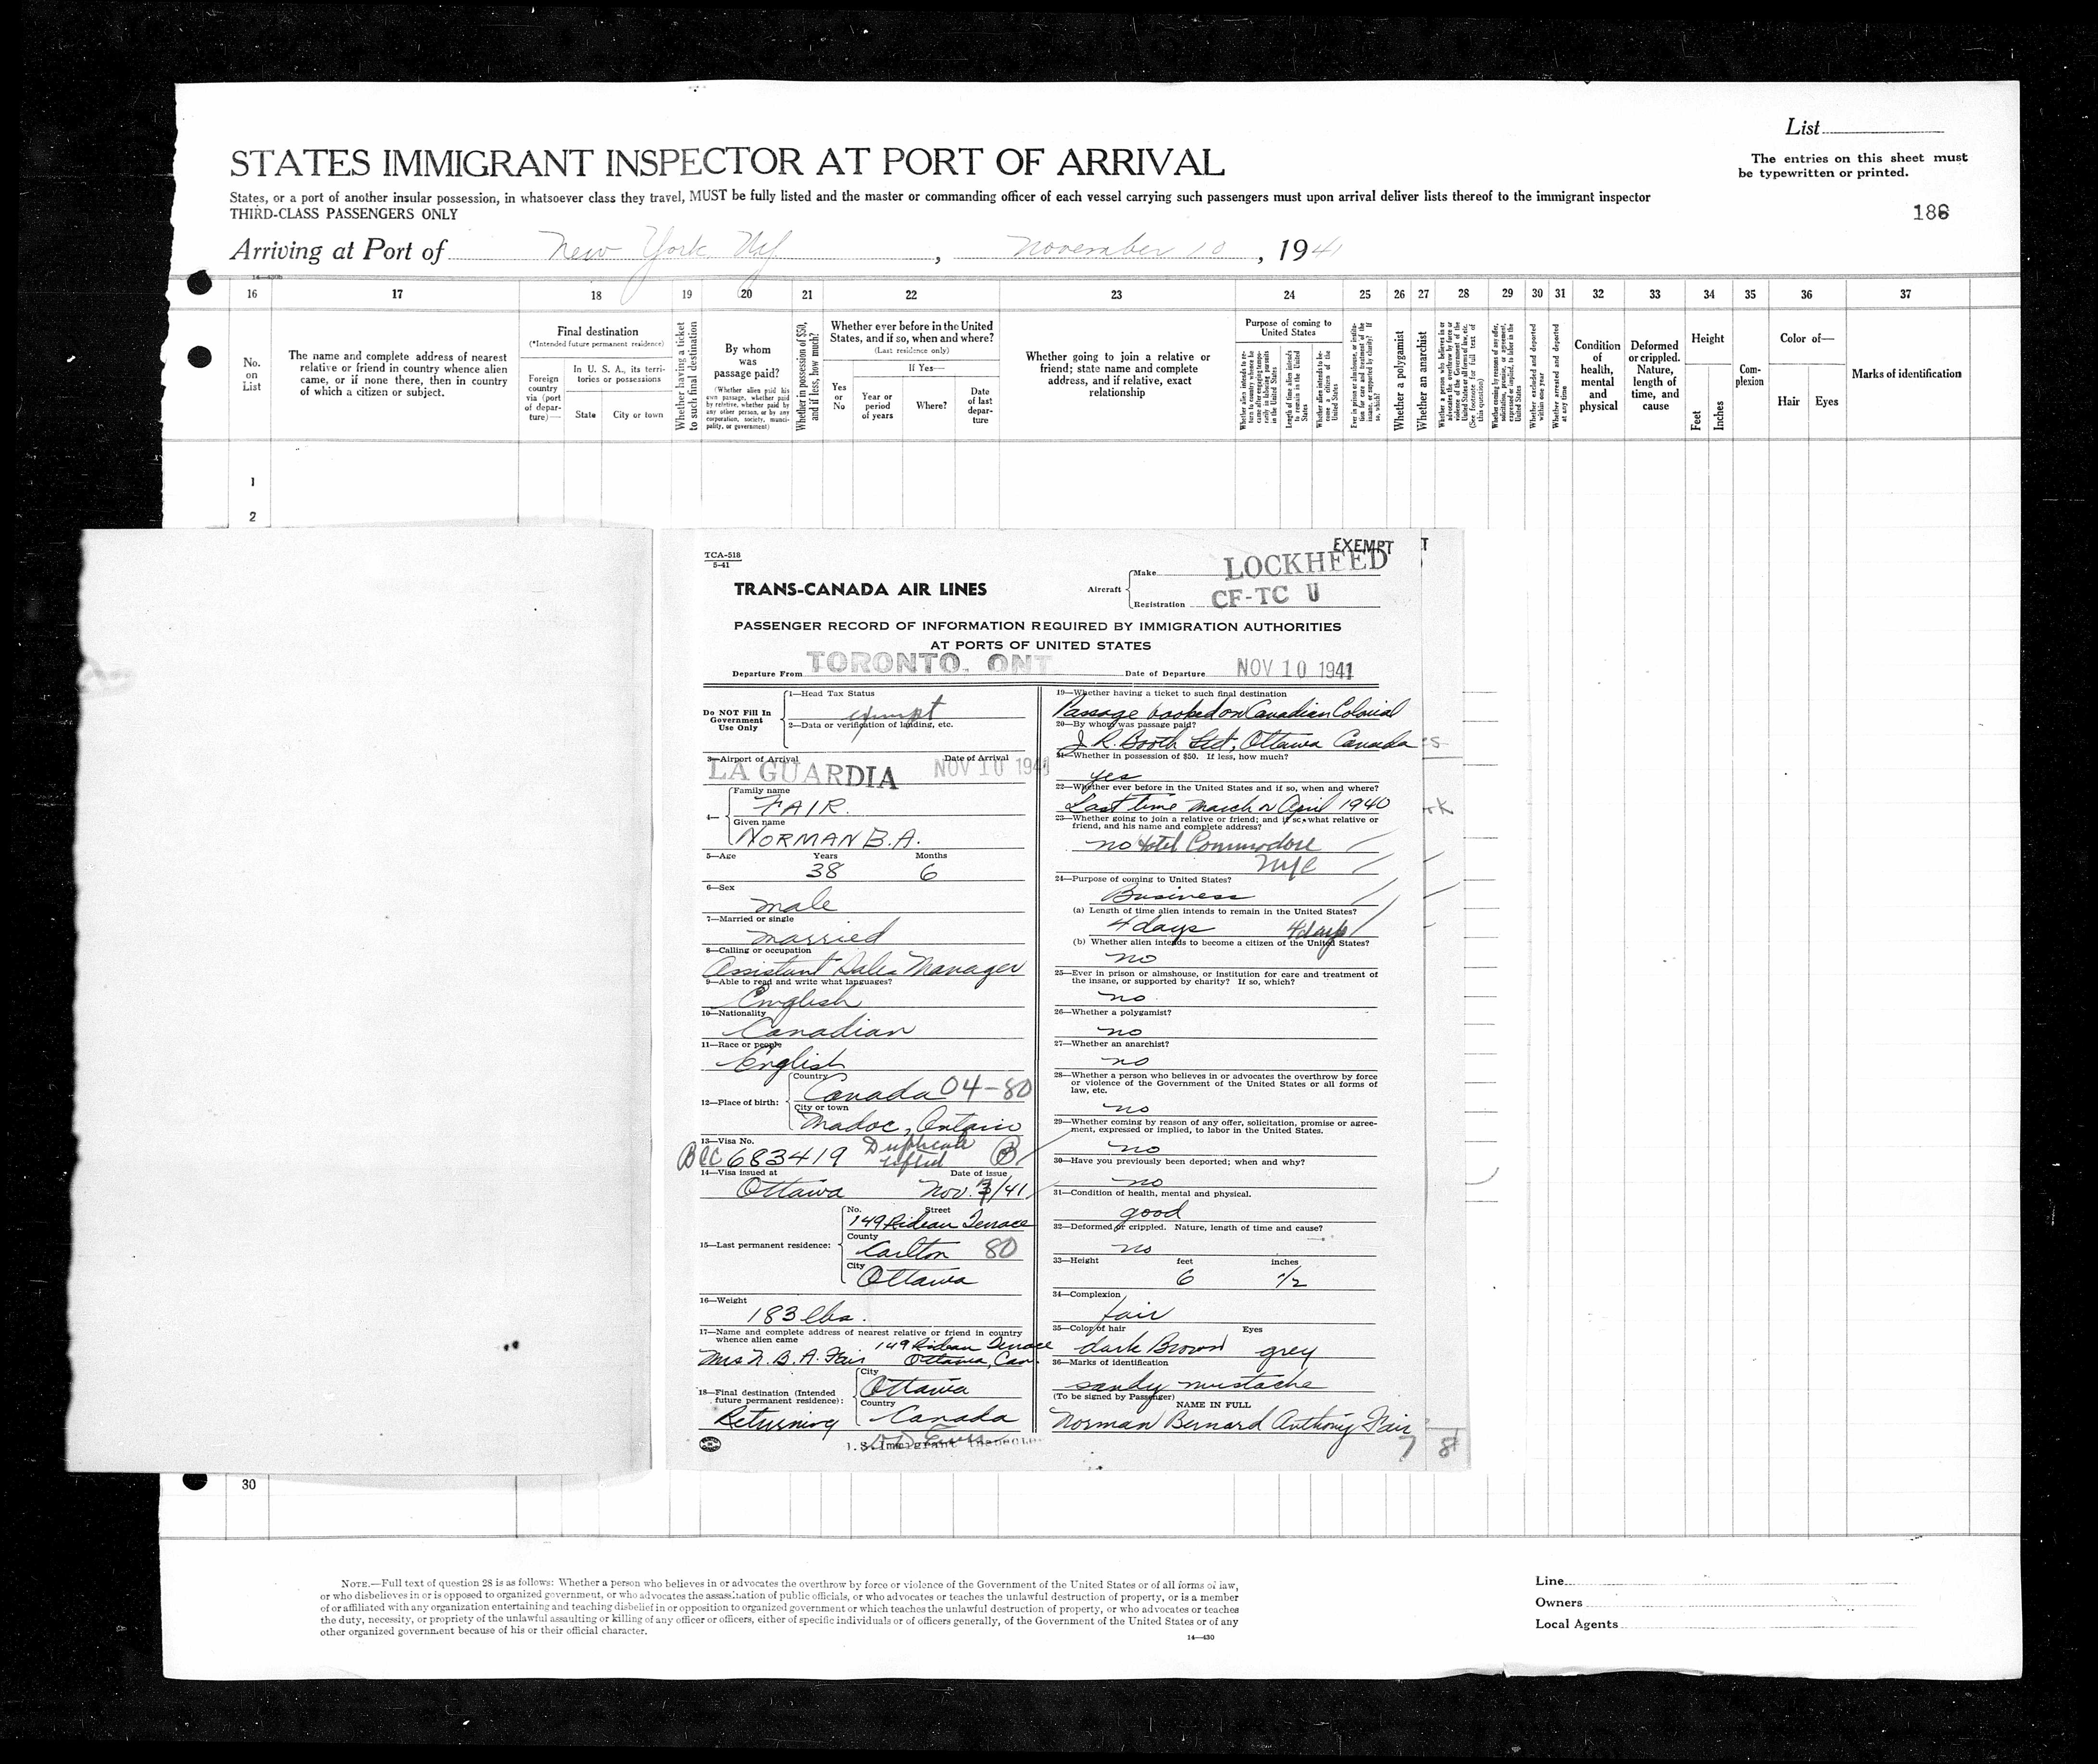 List
STATES IMMIGRANT INSPECTOR AT PORT OF ARRIVAL
The entries on this sheet must
be typewritten or printed.
States, or a port of another insular possession, in whatsoever class they travel, MUST be fully listed and the master or commanding officer of each vessel carrying such passengers must upon arrival deliver lists thereof to the immigrant inspector
THIRD-CLASS PASSENGERS ONLY
186
Arriving at Port of New York NY, November 10, 1941
16 17 18 19 20 21 22 23 24 25 26 27 28 29 30 31 32 33 34 35 36 37
No.
on
List
The name and complete address of nearest
relative or friend in country whence alien
came, or if none there, then in country
of which a citizen or subject.
Final destination
(*Intended future permanent residence)
Foreign
country
via (port
of depar-
ture)—
In U. S. A., its terri-
tories or possessions
State City or town
Whether having a ticket
to such final destination
By whom
was
passage paid?
(Whether alien paid his
own passage, whether paid
by relative, whether paid by
any other person, or by any
corporation, society, munici-
pality, or government)
Whether in possession of $50,
and if less, how much?
Whether ever before in the United
States, and if so, when and where?
(Last residence only)
Yes
or
No
If Yes—
Year or
period
of years
Where?
Date
of last
depar-
ture
Whether going to join a relative or
friend; state name and complete
address, and if relative, exact
relationship
Purpose of coming to
United States
Whether alien intends to re-
turn to country whence he
came after engaging tempo-
rarily in laboring pursuits
in the United States
Length of time alien intends
to remain in the United
States
Whether alien intends to be-
come a citizen of the
United States
Ever in prison or almshouse, or institu-
tion for care and treatment of the
insane, or supported by charity? If
so, which?
Whether a polygamist
Whether an anarchist
Whether a person who believes in or
advocates the overthrow by force or
violence of the Government of the
United States or all forms of law, etc.
(See footnote for full text of
this question)
Whether coming by reason of any offer,
solicitation, promise, or agreement,
expressed or implied, to labor in the
United States
Whether excluded and deported
within one year
Whether arrested and deported
at any time
Condition
of
health,
mental
and
physical
Deformed
or crippled.
Nature,
length of
time, and
cause
Height
Feet
Inches
Com-
plexion
Color of—
Hair Eyes
Marks of identification
1
2
TCA-518
5-41
EXEMPT T
TRANS-CANADA AIR LINES
Aircraft
Make LOCKHEED
Registration CF-TC U
PASSENGER RECORD OF INFORMATION REQUIRED BY IMMIGRATION AUTHORITIES
AT PORTS OF UNITED STATES
Departure From TORONTO, ONT Date of Departure NOV 10 1941
Do NOT Fill In
Government
Use Only
1—Head Tax Status
exempt
2—Data or verification of landing, etc.
3—Airport of Arrival Date of Arrival
LA GUARDIA NOV 10 1941
4—
Family name
FAIR.
Given name
NORMAN B.A.
5—Age Years Months
38 6
6—Sex
male
7—Married or single
married
8—Calling or occupation
Assistant Sales Manager
9—Able to read and write what languages?
English
10—Nationality
Canadian
11—Race or people
English
12—Place of birth:
Country
Canada 04-80
City or town
Madoc, Ontario
13—Visa No.
BCC 683419 Duplicate lifted B
14—Visa issued at Date of issue
Ottawa Nov. 3/41
15—Last permanent residence:
No. Street
149 Rideau Terrace
County
Carlton 80
City
Ottawa
16—Weight
183 lbs.
17—Name and complete address of nearest relative or friend in country
whence alien came
149 Rideau Terrace
Mrs N. B. A. Fair Ottawa, Can.
18—Final destination (Intended
future permanent residence):
Returning
City
Ottawa
Country
Canada
U. S. Immigrant Inspector
19—Whether having a ticket to such final destination
Passage booked on Canadian Colonial
20—By whom was passage paid?
J. R. Booth Ltd, Ottawa Canada
21—Whether in possession of $50. If less, how much?
yes
22—Whether ever before in the United States and if so, when and where?
Last time March or April 1940
23—Whether going to join a relative or friend; and if so, what relative or
friend, and his name and complete address?
no Hotel Commodore
NYC
24—Purpose of coming to United States?
Business
(a) Length of time alien intends to remain in the United States?
4 days 4 days
(b) Whether alien intends to become a citizen of the United States?
no
25—Ever in prison or almshouse, or institution for care and treatment of
the insane, or supported by charity? If so, which?
no
26—Whether a polygamist?
no
27—Whether an anarchist?
no
28—Whether a person who believes in or advocates the overthrow by force
or violence of the Government of the United States or all forms of
law, etc.
no
29—Whether coming by reason of any offer, solicitation, promise or agree-
ment, expressed or implied, to labor in the United States.
no
30—Have you previously been deported; when and why?
no
31—Condition of health, mental and physical.
good
32—Deformed or crippled. Nature, length of time and cause?
no
33—Height feet inches
6 1/2
34—Complexion
fair
35—Color of hair Eyes
dark Brown grey
36—Marks of identification
sandy mustache
(To be signed by Passenger) NAME IN FULL
Norman Bernard Anthony Fair
7 8
30
NOTE.—Full text of question 28 is as follows: Whether a person who believes in or advocates the overthrow by force or violence of the Government of the United States or of all forms of law,
or who disbelieves in or is opposed to organized government, or who advocates the assassination of public officials, or who advocates or teaches the unlawful destruction of property, or is a member
of or affiliated with any organization entertaining and teaching disbelief in or opposition to organized government or which teaches the unlawful destruction of property, or who advocates or teaches
the duty, necessity, or propriety of the unlawful assaulting or killing of any officer or officers, either of specific individuals or of officers generally, of the Government of the United States or of any
other organized government because of his or their official character.
14—430
Line
Owners
Local Agents